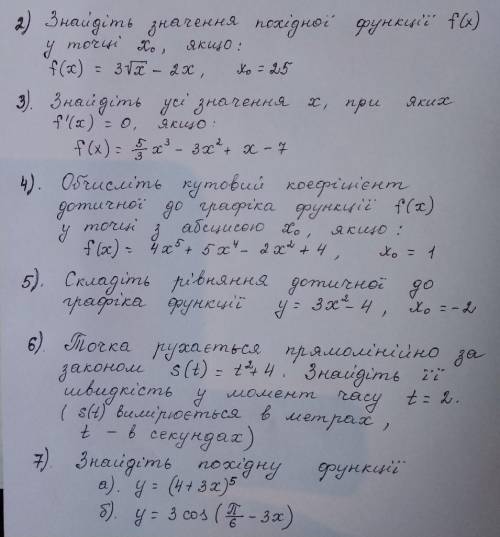 2) Знайдіть значення похідної функції f(x)
у точці x₀, якщо:
f(x) = 3√x - 2x, x₀ = 25
3). Знайдіть усі значення x, при яких
f'(x) = 0, якщо:
f(x) = 5/3 x³ - 3x² + x - 7
4). Обчисліть кутовий коефіцієнт
дотичної до графіка функції f(x)
у точці з абсцисою x₀, якщо:
f(x) = 4x⁵ + 5x⁴ - 2x² + 4, x₀ = 1
5). Складіть рівняння дотичної до
графіка функції y = 3x² - 4, x₀ = -2
6). Точка рухається прямолінійно за
законом s(t) = t² + 4. Знайдіть її
швидкість у момент часу t = 2.
(s(t) вимірюється в метрах,
t - в секундах)
7). Знайдіть похідну функції
а). y = (4 + 3x)⁵
б). y = 3 cos (π/6 - 3x)